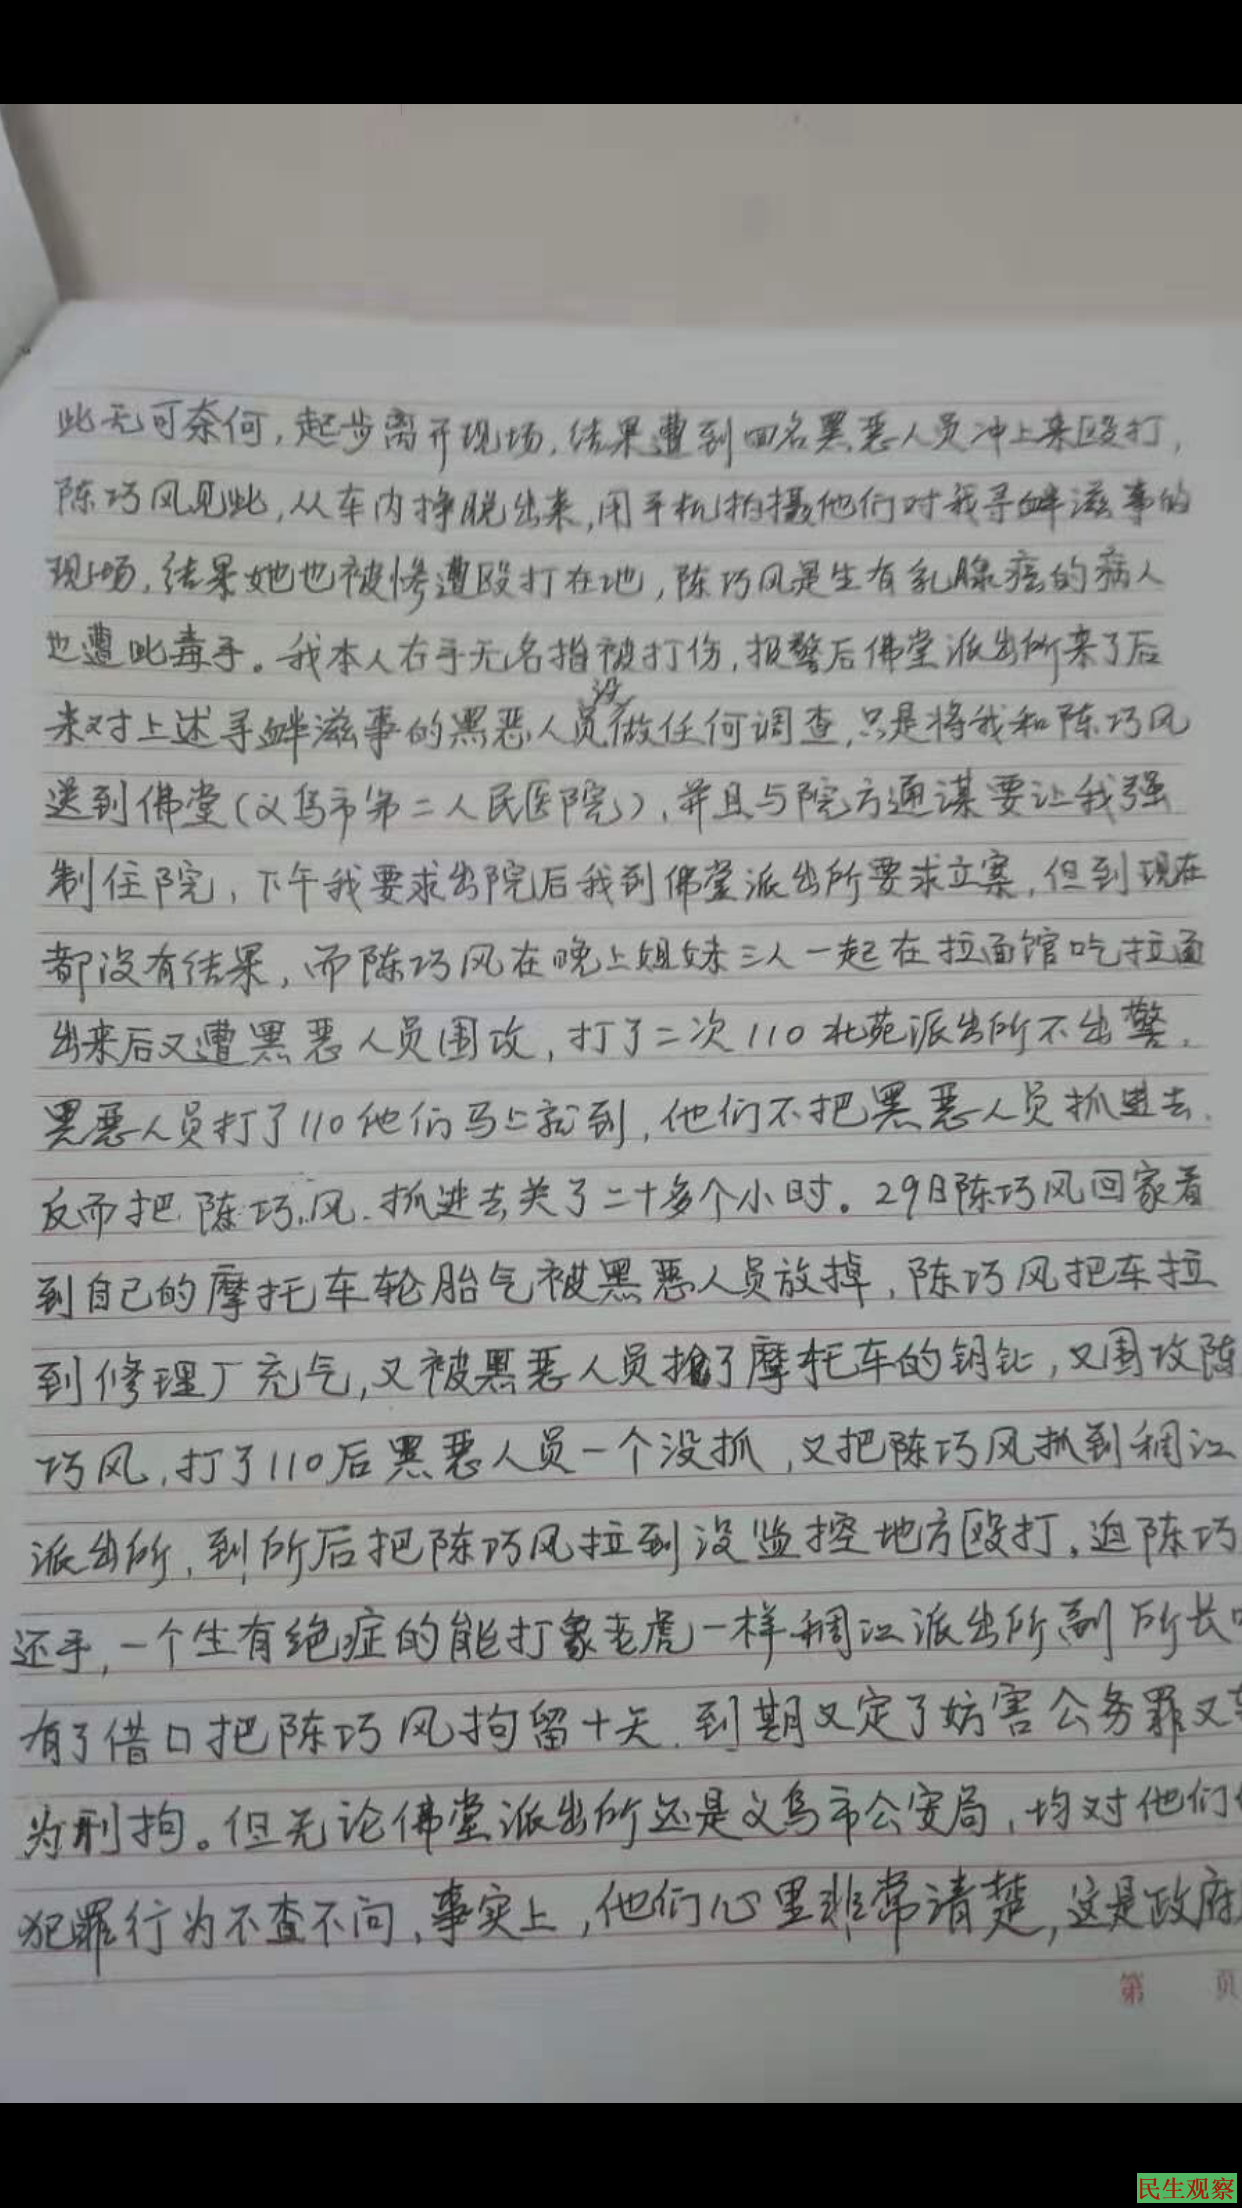 此无可奈何,起步离开现场,结果遭到四名黑恶人员冲上来殴打,
陈巧风见此,从车内挣脱出来,用手机拍摄他们对我寻衅滋事的
现场,结果她也被惨遭殴打在地,陈巧风是生有乳腺癌的病人
也遭此毒手。我本人右手无名指被打伤,报警后佛堂派出所来了后
来对上述寻衅滋事的黑恶人员没做任何调查,只是将我和陈巧风
送到佛堂(义乌市第二人民医院),并且与院方通谋要让我强
制住院,下午我要求出院后我到佛堂派出所要求立案,但到现在
都没有结果,而陈巧风在晚上姐妹三人一起在拉面馆吃拉面
出来后又遭黑恶人员围攻,打了二次110北苑派出所不出警,
黑恶人员打了110他们马上就到,他们不把黑恶人员抓进去,
反而把陈巧风抓进去关了二十多个小时。29日陈巧风回家看
到自己的摩托车轮胎气被黑恶人员放掉,陈巧风把车拉
到修理厂充气,又被黑恶人员抢了摩托车的钥匙,又围攻陈
巧风,打了110后黑恶人员一个没抓,又把陈巧风抓到稠江
派出所,到所后把陈巧风拉到没监控地方殴打,迫陈巧
还手,一个生有绝症的能打象老虎一样稠江派出所副所长
有了借口把陈巧风拘留十天,到期又定了妨害公务罪又
为刑拘。但无论佛堂派出所还是义乌市公安局,均对他们
犯罪行为不查不问,事实上,他们心里非常清楚,这是政府
第 页
民生观察